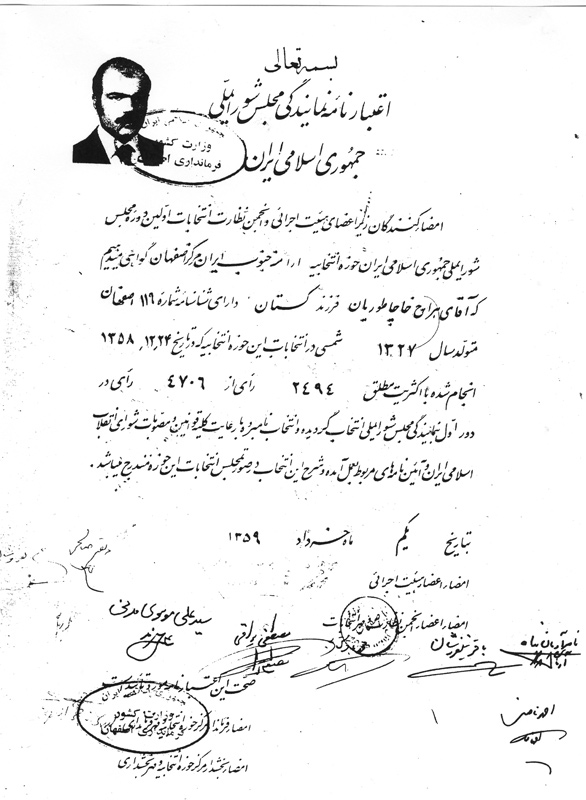 بسمه تعالی
اعتبارنامه نمایندگی مجلس شورای ملی
جمهوری اسلامی ایران
جمهوری اسلامی ایران
وزارت کشور
فرمانداری
امضاء کنندگان زیر اعضای هیئت اجرائی و انجمن نظارت انتخابات اولین دوره مجلس
شورای ملی جمهوری اسلامی ایران حوزه انتخابیه ارامنه جنوب ایران مرکز اصفهان گواهی میدهیم
که آقای هراچ خاچاطوریان فرزند گستان دارای شناسنامه شماره ۱۱۹ اصفهان
متولد سال ۱۳۲۷ شمسی در انتخابات این حوزه انتخابیه که در تاریخ ۱۳۵۸٫۱۲٫۲۴
انجام شده با اکثریت مطلق ۲۴۹۴ رأی از ۴۷۰۶ رأی در
دور اول بنمایندگی مجلس شورای ملی انتخاب گردیده و انتخاب نامبرده با رعایت کلیه قوانین و مصوبات شورای انقلاب
اسلامی ایران و آئین نامه‌های مربوط بعمل آمده و شرح این انتخاب در صورتمجلس انتخابات این حوزه مندرج میباشد.
بتاریخ یکم ماه خرداد ۱۳۵۹
امضاء اعضاء هیئت اجرائی
سید علی موسوی
امضاء اعضاء انجمن نظارت
مصطفی
صحت این اعتبارنامه مورد تأیید است
وزارت کشور
فرمانداری اصفهان
امضاء فرماندار مرکز حوزه انتخابیه
احمد
امضاء بخشدار مرکز حوزه انتخابیه و مهر بخشداری